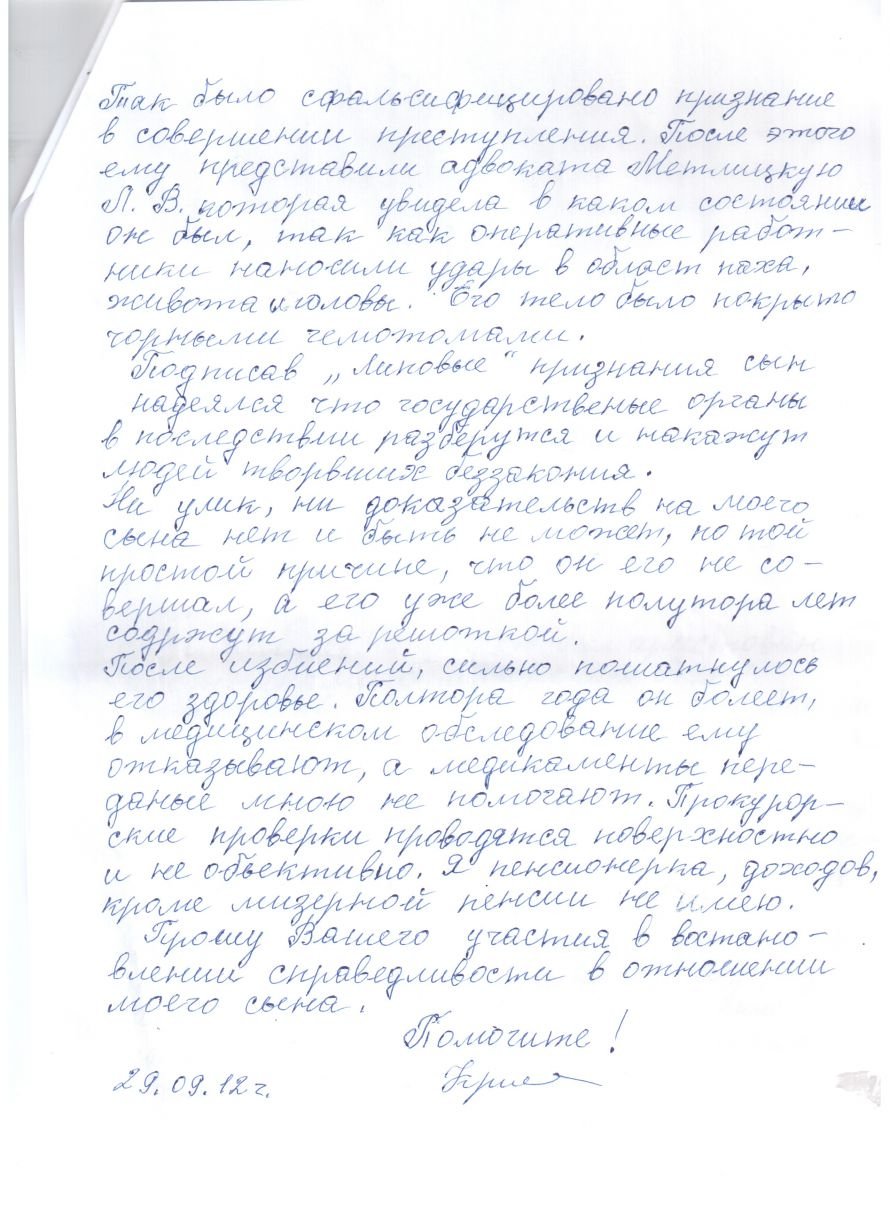 Так было сфальсифицировано признание
в совершении преступления. После этого
ему представили адвоката Метлицкую
Л. В. которая увидела в каком состоянии
он был, так как оперативные работ-
ники наносили удары в област паха,
живота и головы. Его тело было покрыто
чорными гемотомами.
Подписав „Липовые“ признания сын
надеялся что государственые органы
в последствии разберутся и накажут
людей творвших беззакония.
Ни улик, ни доказательств на моего
сына нет и быть не может, по той
простой причине, что он его не со-
вершал, а его уже более полутора лет
содржут за решоткой.
После избиений, сильно пошатнулось
его здоровье. Полтора года он болеет,
в медицинском обследование ему
отказывают, а медикаменты пере-
даные мною не помогают. Прокурор-
ские проверки проводятся поверхностно
и не объективно. Я пенсионерка, доходов,
кроме мизерной пенсии не имею.
Прошу Вашего участия в востано-
влении справедливости в отношении
моего сына.
Помогите!
29.09.12г.